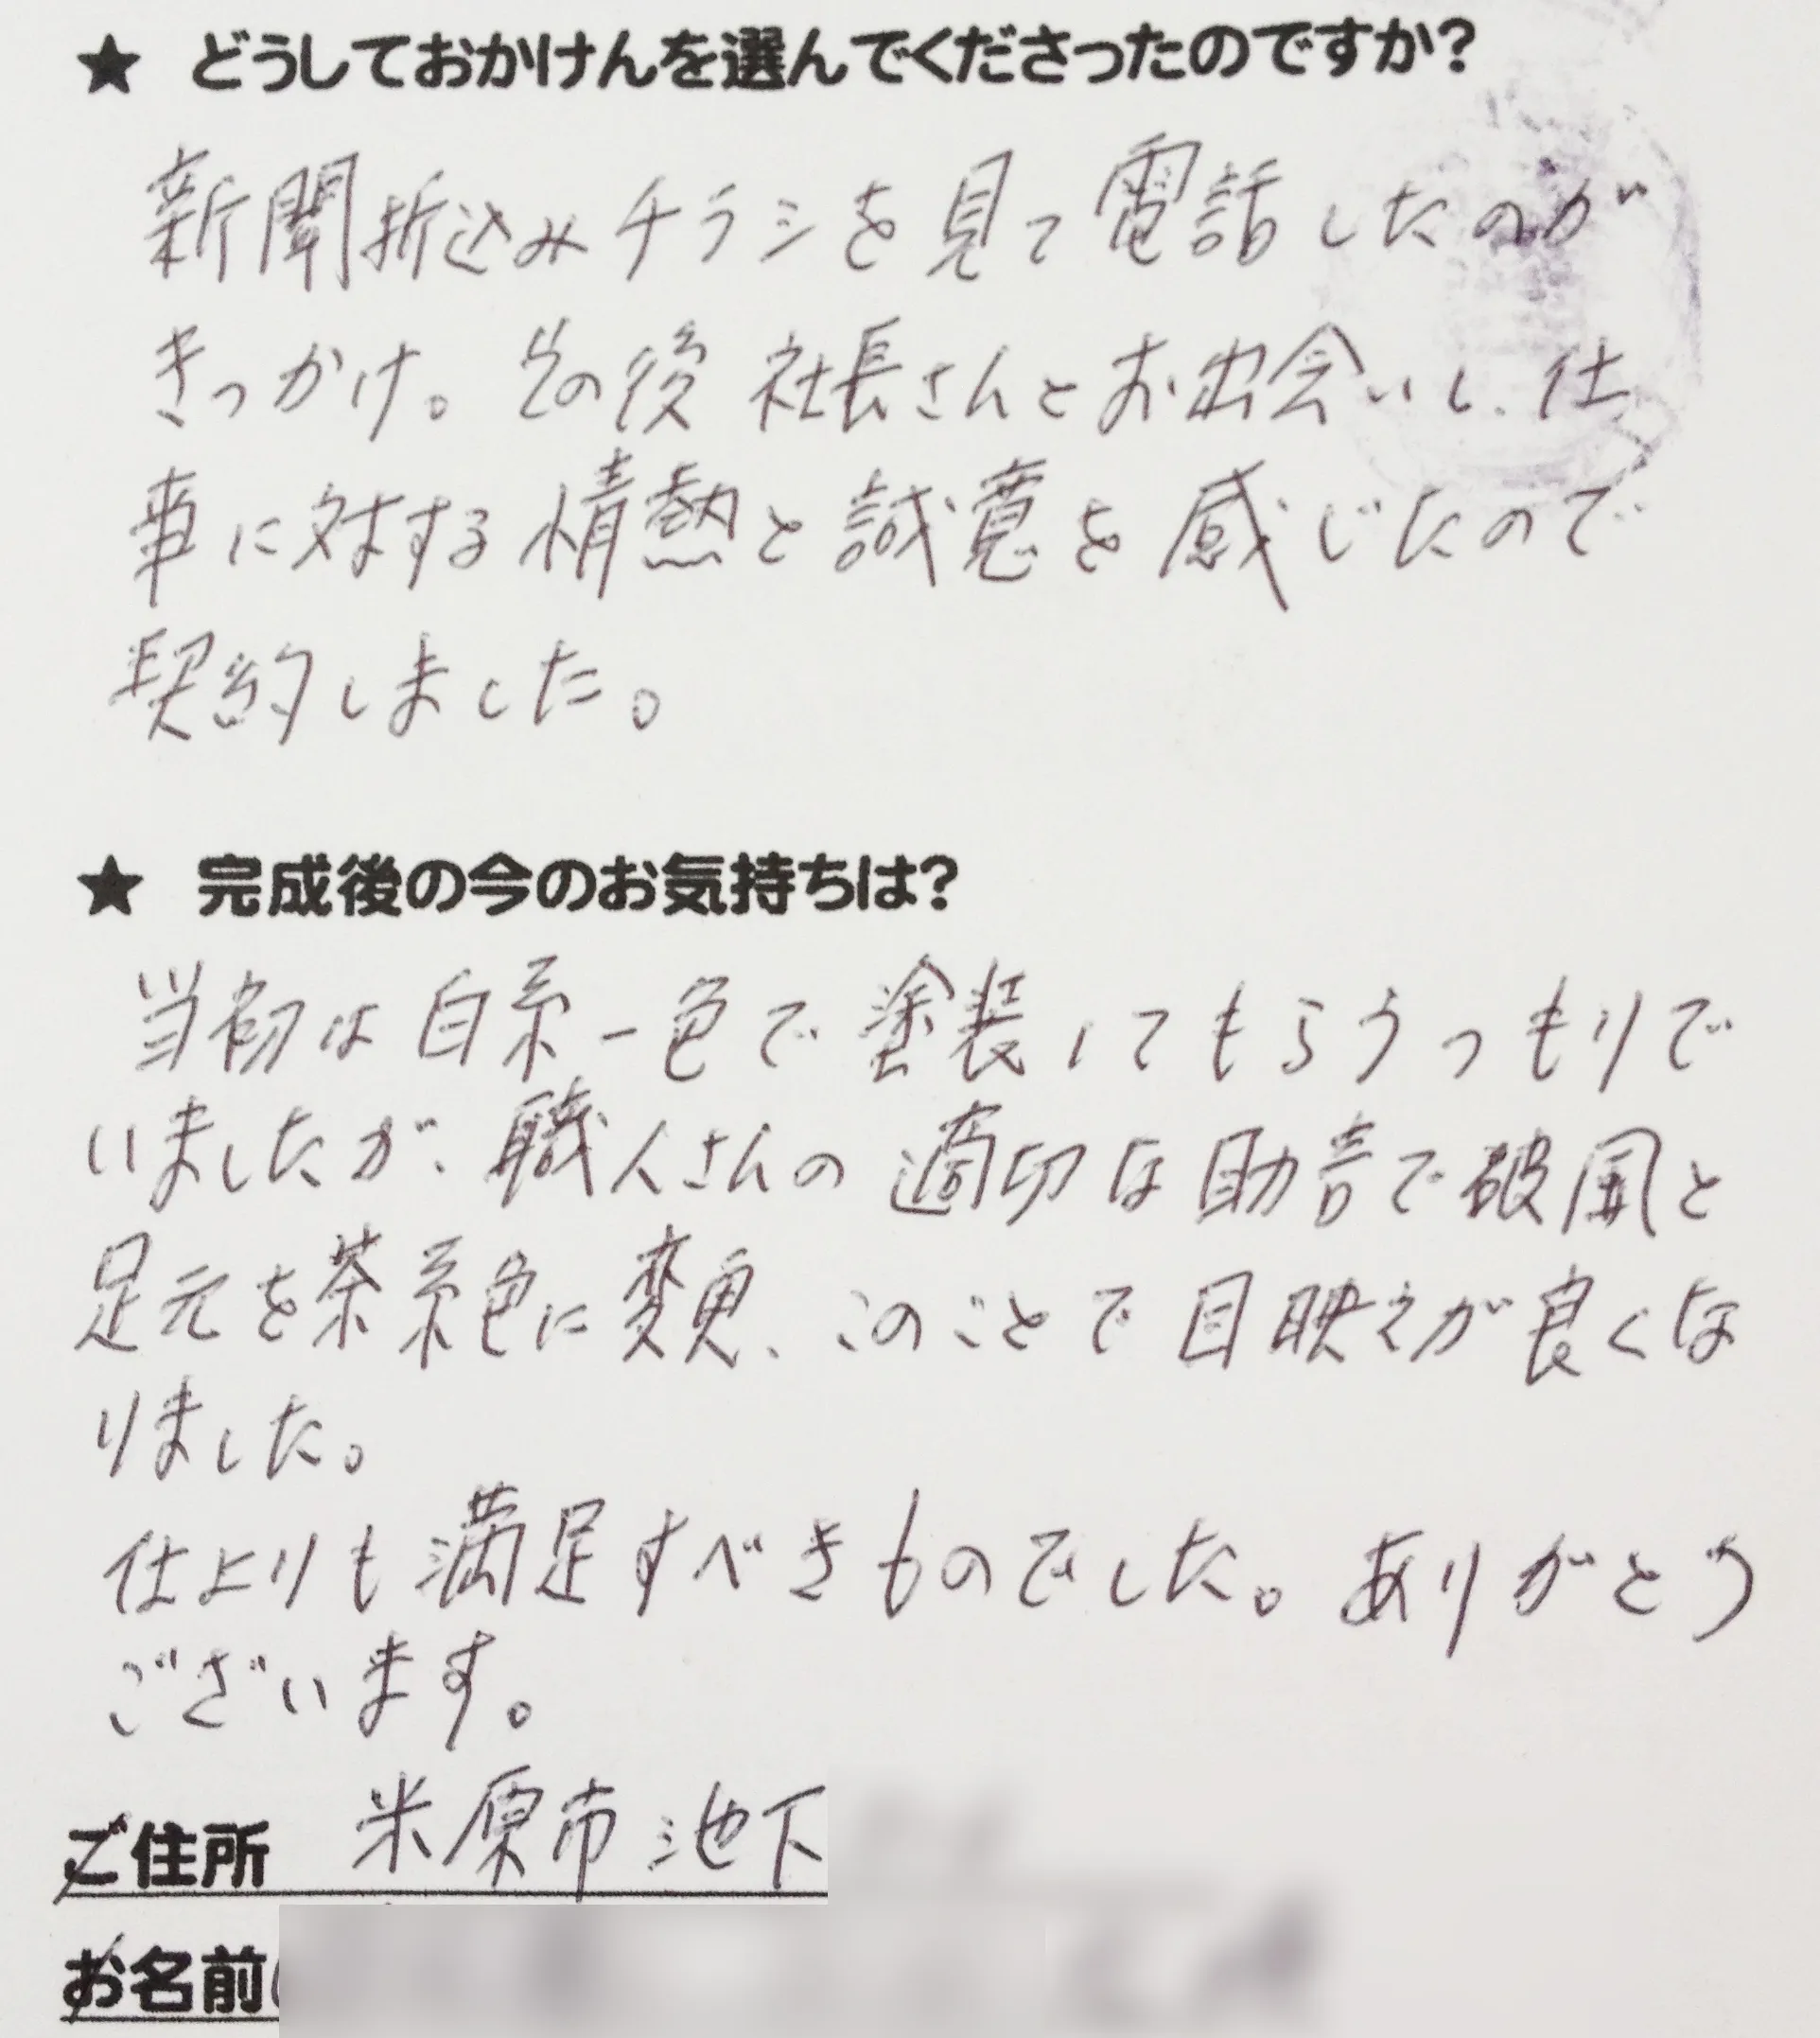 ★ どうしておかけんを選んでくださったのですか?
新聞折込みチラシを見て電話したのが
きっかけ。その後 社長さんとお出会いし、仕
事に対する情熱と誠意を感じたので
契約しました。
★ 完成後の今のお気持ちは?
当初は白系一色で塗装してもらうつもりで
いましたが、職人さんの適切な助言で破風と
足元を茶系色に変更、このことで目映えが良くな
りました。
仕上りも満足すべきものでした。ありがとう
ございます。
ご住所 米原市池下
お名前